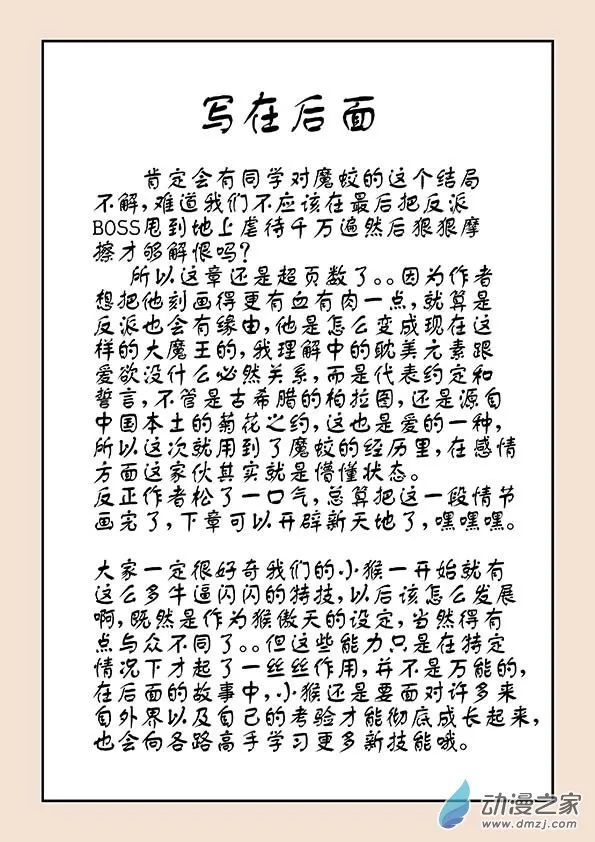 写在后面
肯定会有同学对魔蛟的这个结局
不解,难道我们不应该在最后把反派
BOSS甩到地上虐待千万遍然后狠狠摩
擦才够解恨吗?
所以这章还是超页数了。。因为作者
想把他刻画得更有血有肉一点,就算是
反派也会有缘由,他是怎么变成现在这
样的大魔王的,我理解中的耽美元素跟
爱欲没什么必然关系,而是代表约定和
誓言,不管是古希腊的柏拉图,还是源自
中国本土的菊花之约,这也是爱的一种,
所以这次就用到了魔蛟的经历里,在感情
方面这家伙其实就是懵懂状态。
反正作者松了一口气,总算把这一段情节
画完了,下章可以开辟新天地了,嘿嘿嘿。
大家一定很好奇我们的小猴一开始就有
这么多牛逼闪闪的特技,以后该怎么发展
啊,既然是作为猴傲天的设定,当然得有
点与众不同了。。但这些能力只是在特定
情况下才起了一丝丝作用,并不是万能的,
在后面的故事中,小猴还是要面对许多来
自外界以及自己的考验才能彻底成长起来,
也会向各路高手学习更多新技能哦。
动漫之家
www.dmzj.com